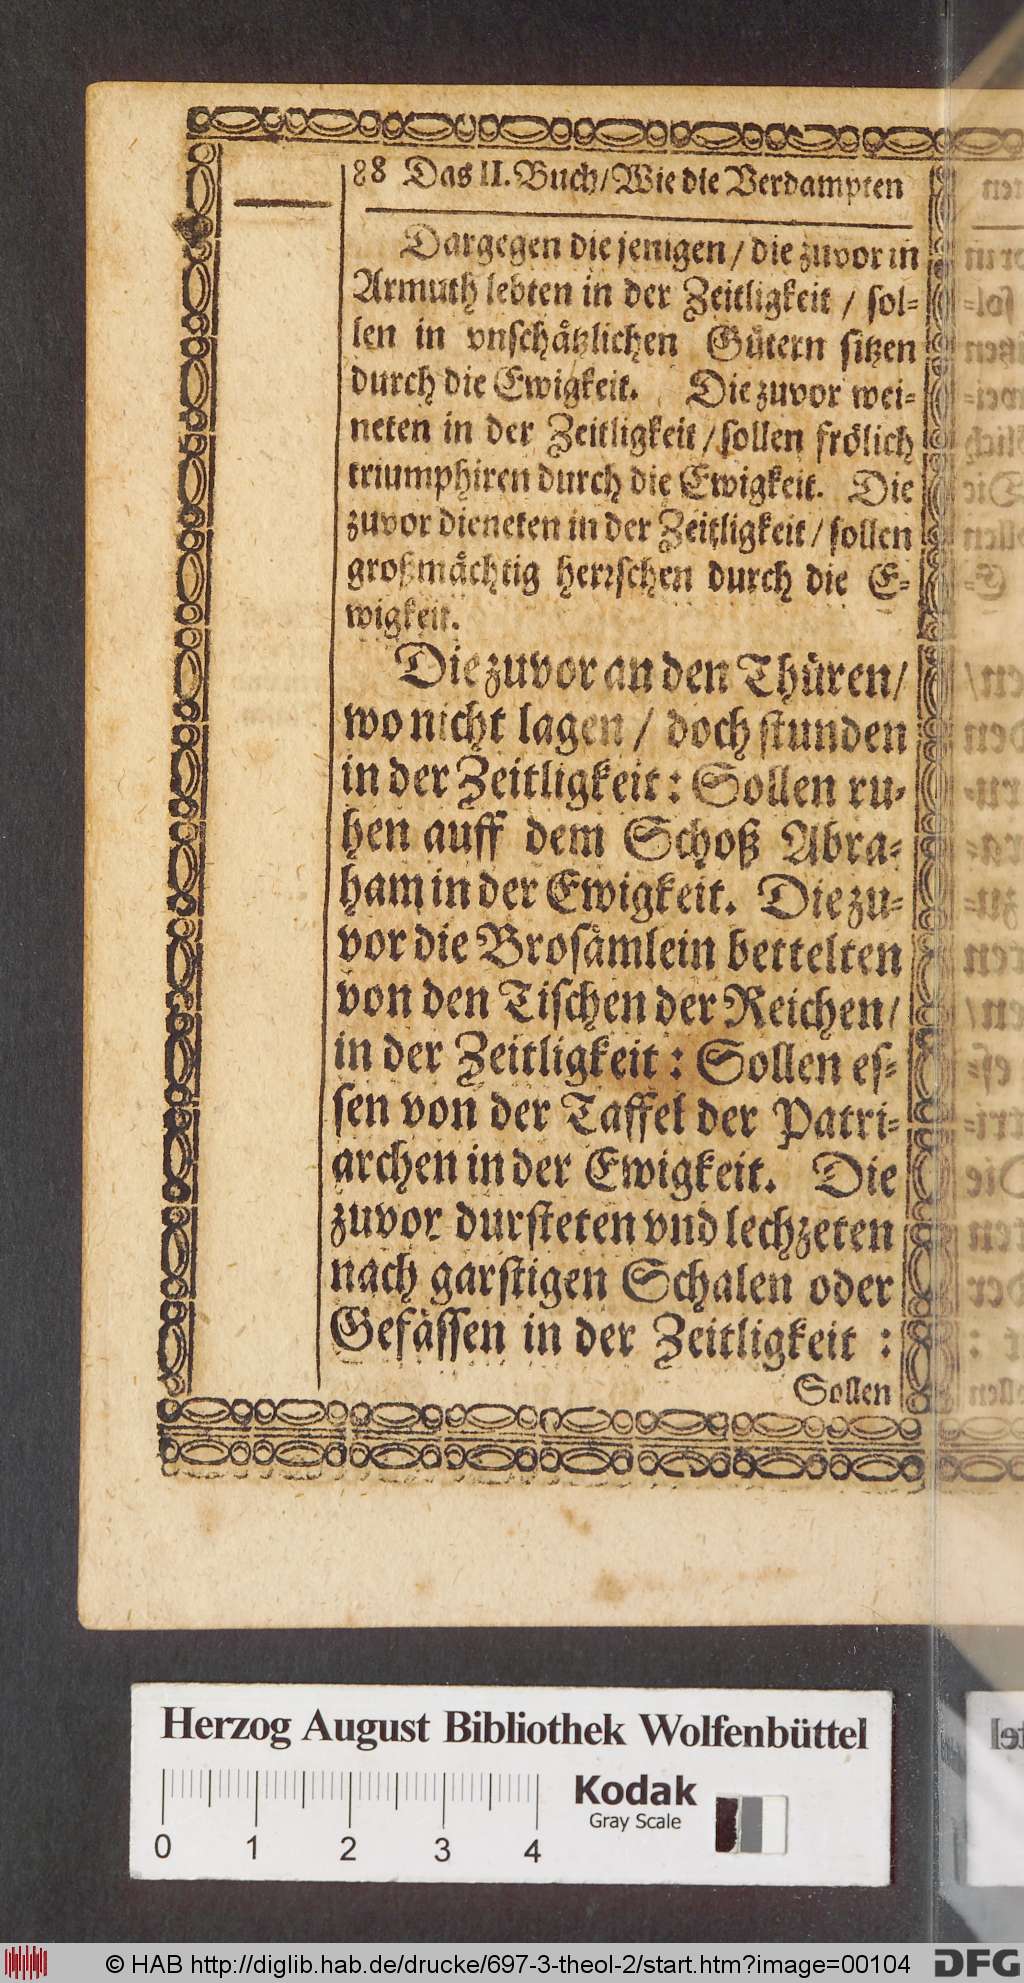 88 Das II. Buch/Wie die Verdampten
Dargegen die jenigen / die zuvor in
Armuth lebten in der Zeitligkeit / sol-
len in vnschätzlichen Gütern sitzen
durch die Ewigkeit. Die zuvor wei-
neten in der Zeitligkeit / sollen frölich
triumphiren durch die Ewigkeit. Die
zuvor dieneten in der Zeitligkeit / sollen
großmächtig herrschen durch die E-
wigkeit.
Die zuvor an den Thüren/
wo nicht lagen / doch stunden
in der Zeitligkeit: Sollen ru-
hen auff dem Schoß Abra-
ham in der Ewigkeit. Die zu-
vor die Brosämlein bettelten
von den Tischen der Reichen/
in der Zeitligkeit: Sollen es-
sen von der Taffel der Patri-
archen in der Ewigkeit. Die
zuvor dursteten vnd lechzeten
nach garstigen Schalen oder
Gefässen in der Zeitligkeit :
Sollen
Herzog August Bibliothek Wolfenbüttel
Kodak
Gray Scale
0 1 2 3 4
© HAB http://diglib.hab.de/drucke/697-3-theol-2/start.htm?image=00104
DFG